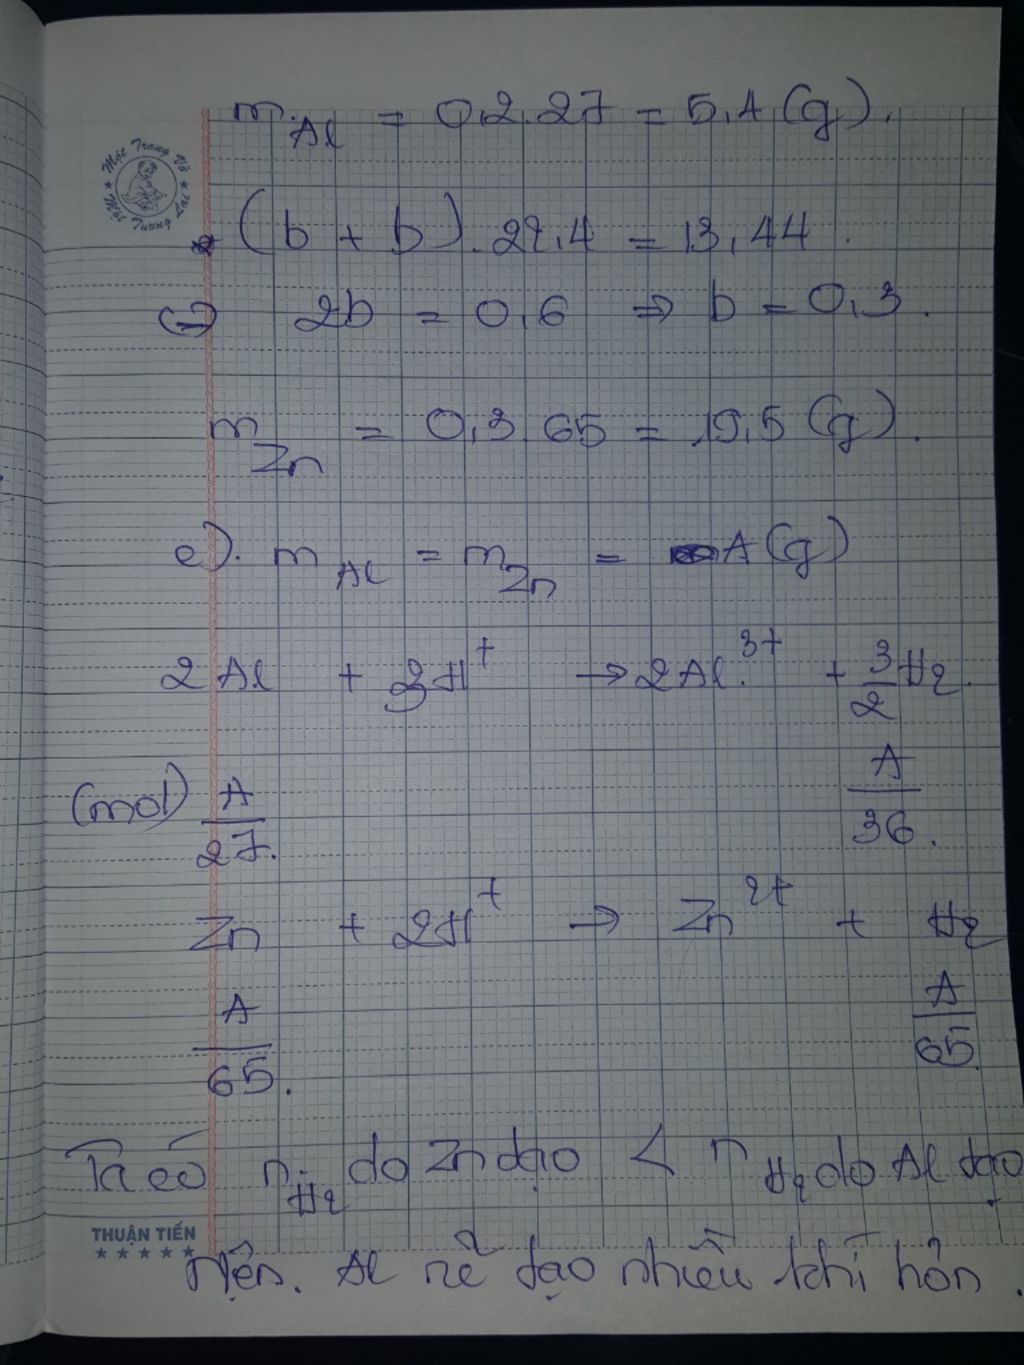 m Al = 0,2.27 = 5,4 (g).
Một Trang Vở
Một Tương Lai
(b + b). 22,4 = 13,44.
(=) 2b = 0,6 ⇒ b = 0,3.
m Zn = 0,3.65 = 19,5 (g).
c). m Al = m Zn = A (g)
2Al + 3H⁺ → 2Al³⁺ + 3/2 H₂.
(mol) A/27. A/36.
Zn + 2H⁺ → Zn²⁺ + H₂
A/65. A/65
Ta có n H₂ do Zn tạo < n H₂ do Al tạo
THUẬN TIẾN
Nên. Al sẽ tạo nhiều khí hơn.